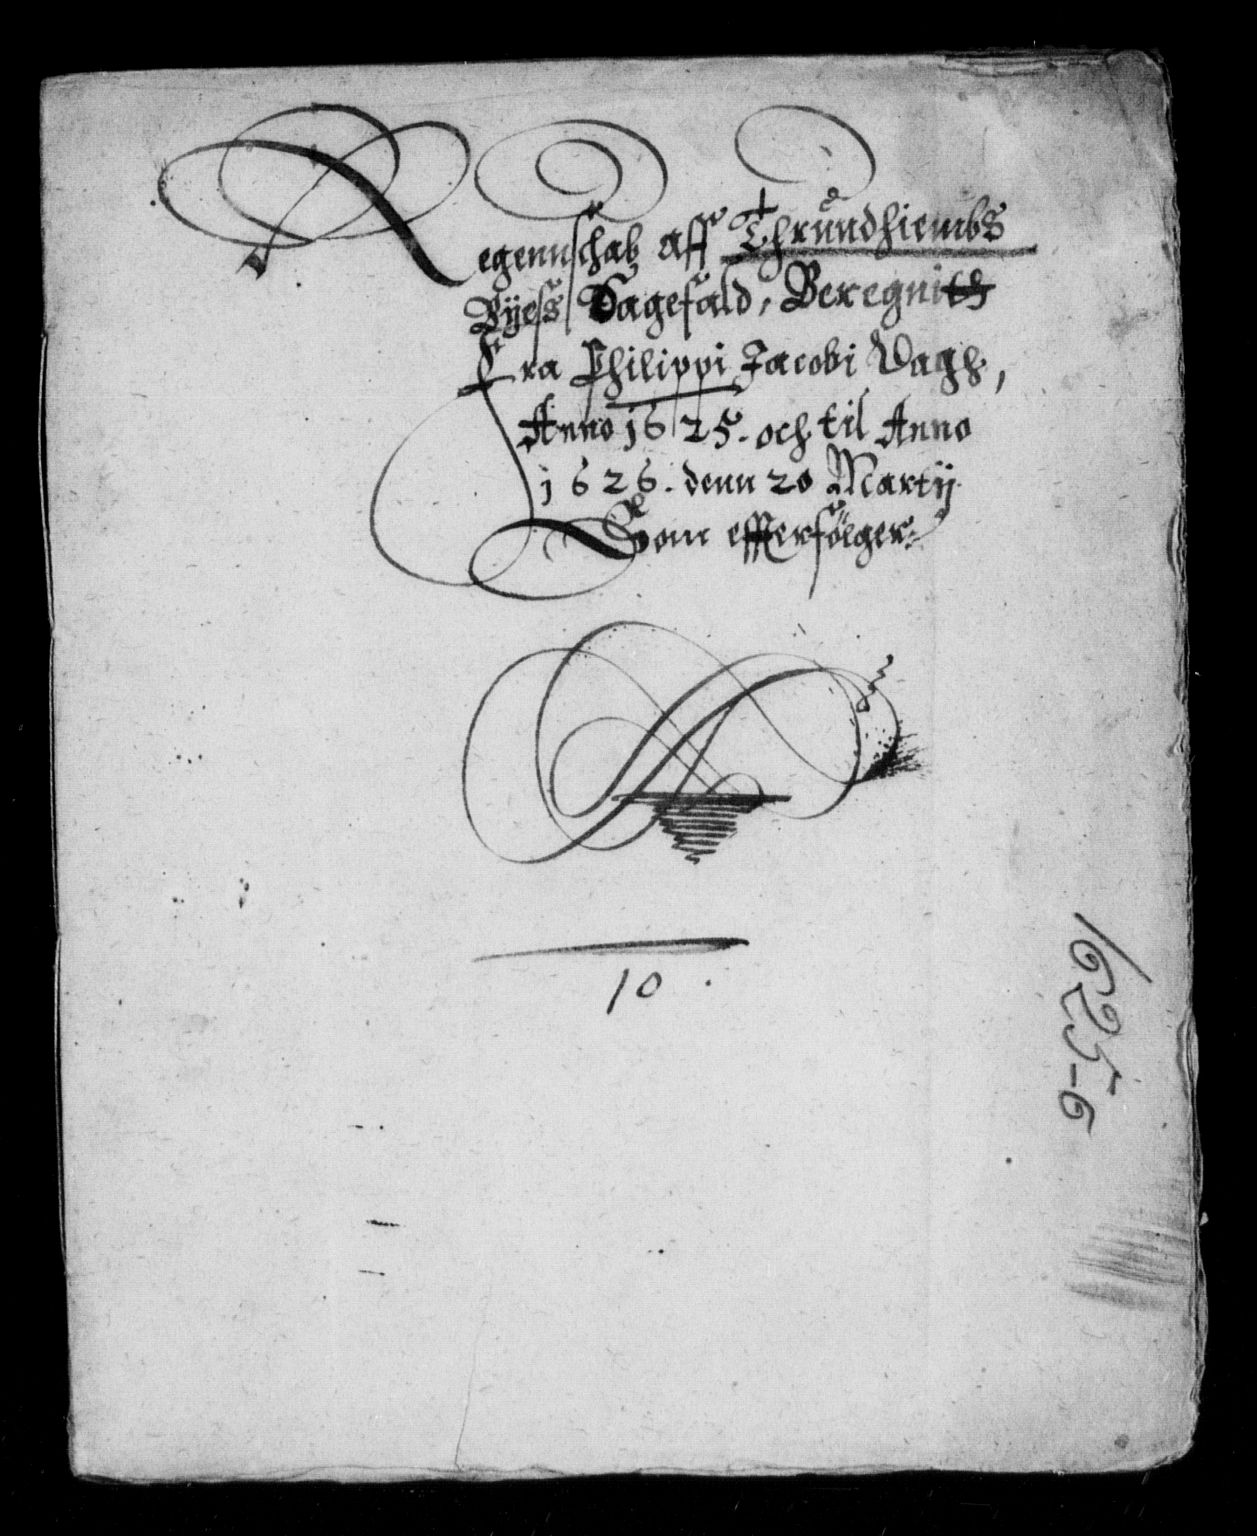 Regennschab aff Thrundhiembs
Byess Sagefald, Beregnith
Fra Philippi Jacobi Dagh,
Anno 1625. och til Anno
1626. denn 20 Martij
Som effterfölger.
10.
1625-6